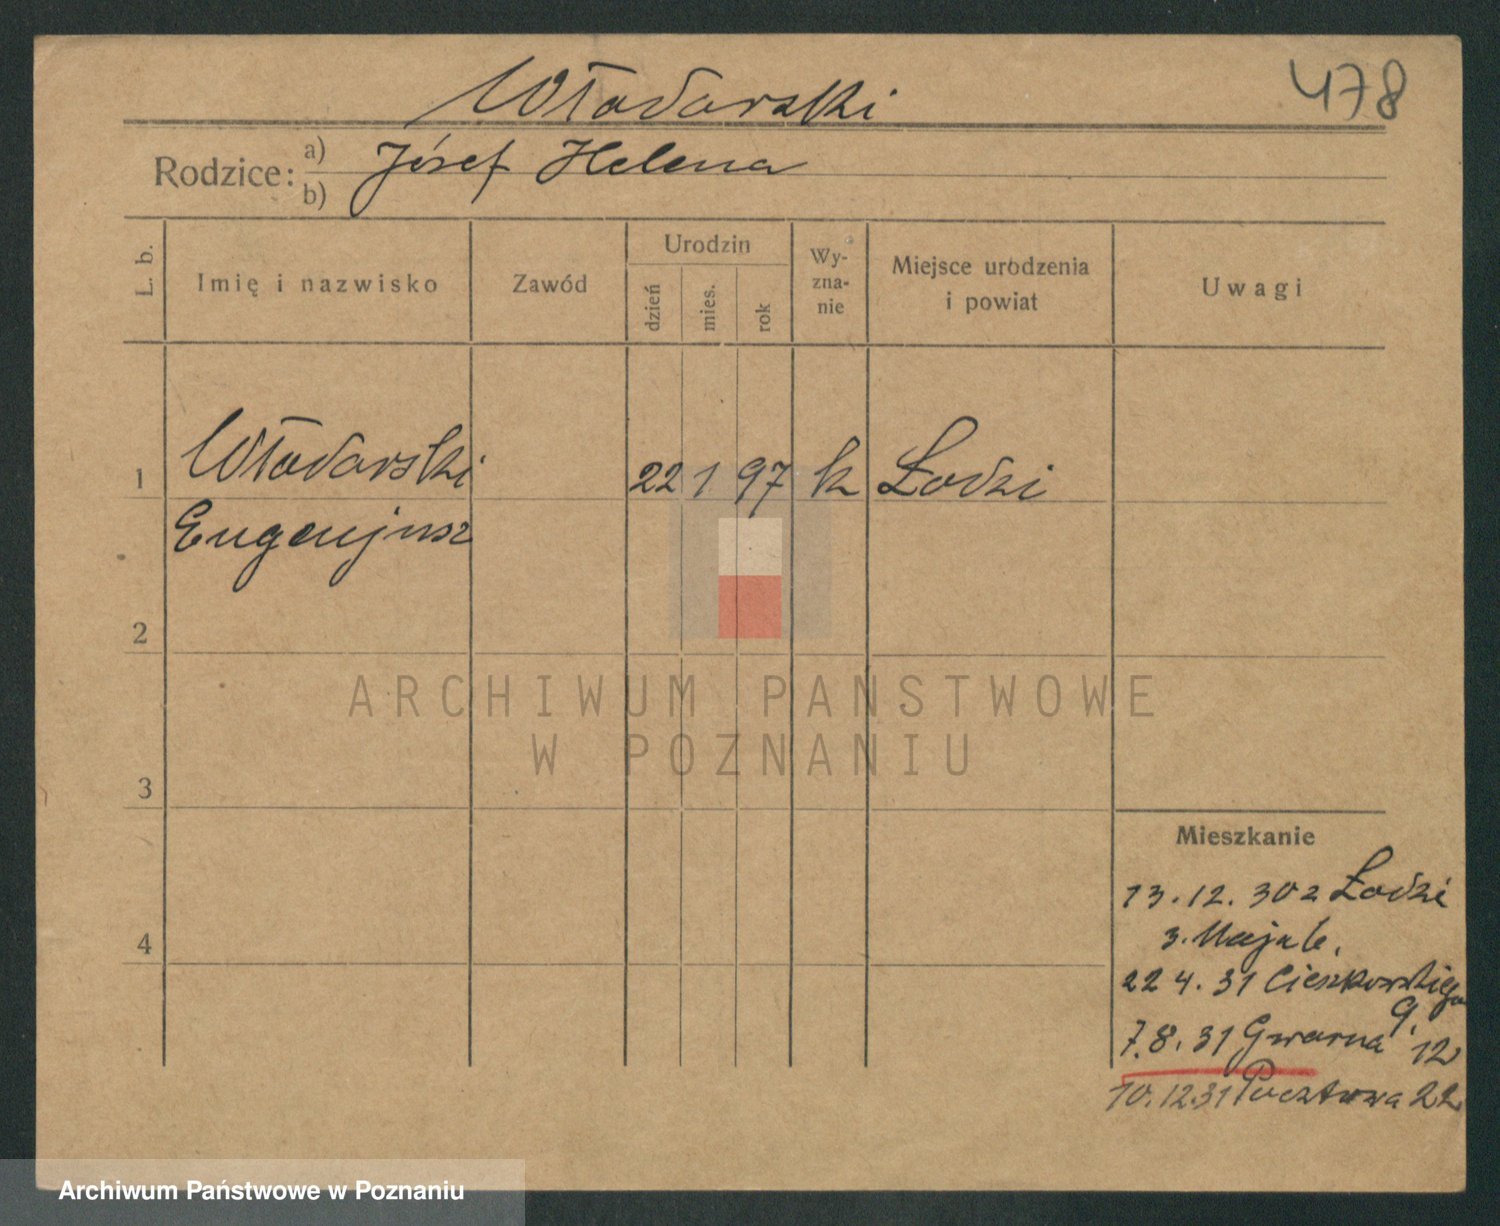 Włodarski 478
Rodzice: a) Józef Helena
b)
L. b. Imię i nazwisko Zawód Urodzin dzień mies. rok Wy-zna-nie Miejsce urodzenia i powiat Uwagi
1 Włodarski 22 1 97 k Łodzi
Eugenjusz
2
ARCHIWUM PAŃSTWOWE
W POZNANIU
3
Mieszkanie
13.12.30 z Łodzi
3. Maja 6.
4
22 4.31 Cieszkowskiego
9.
7.8.31 Gwarna 12
10.12.31 Pocztowa 22
Archiwum Państwowe w Poznaniu